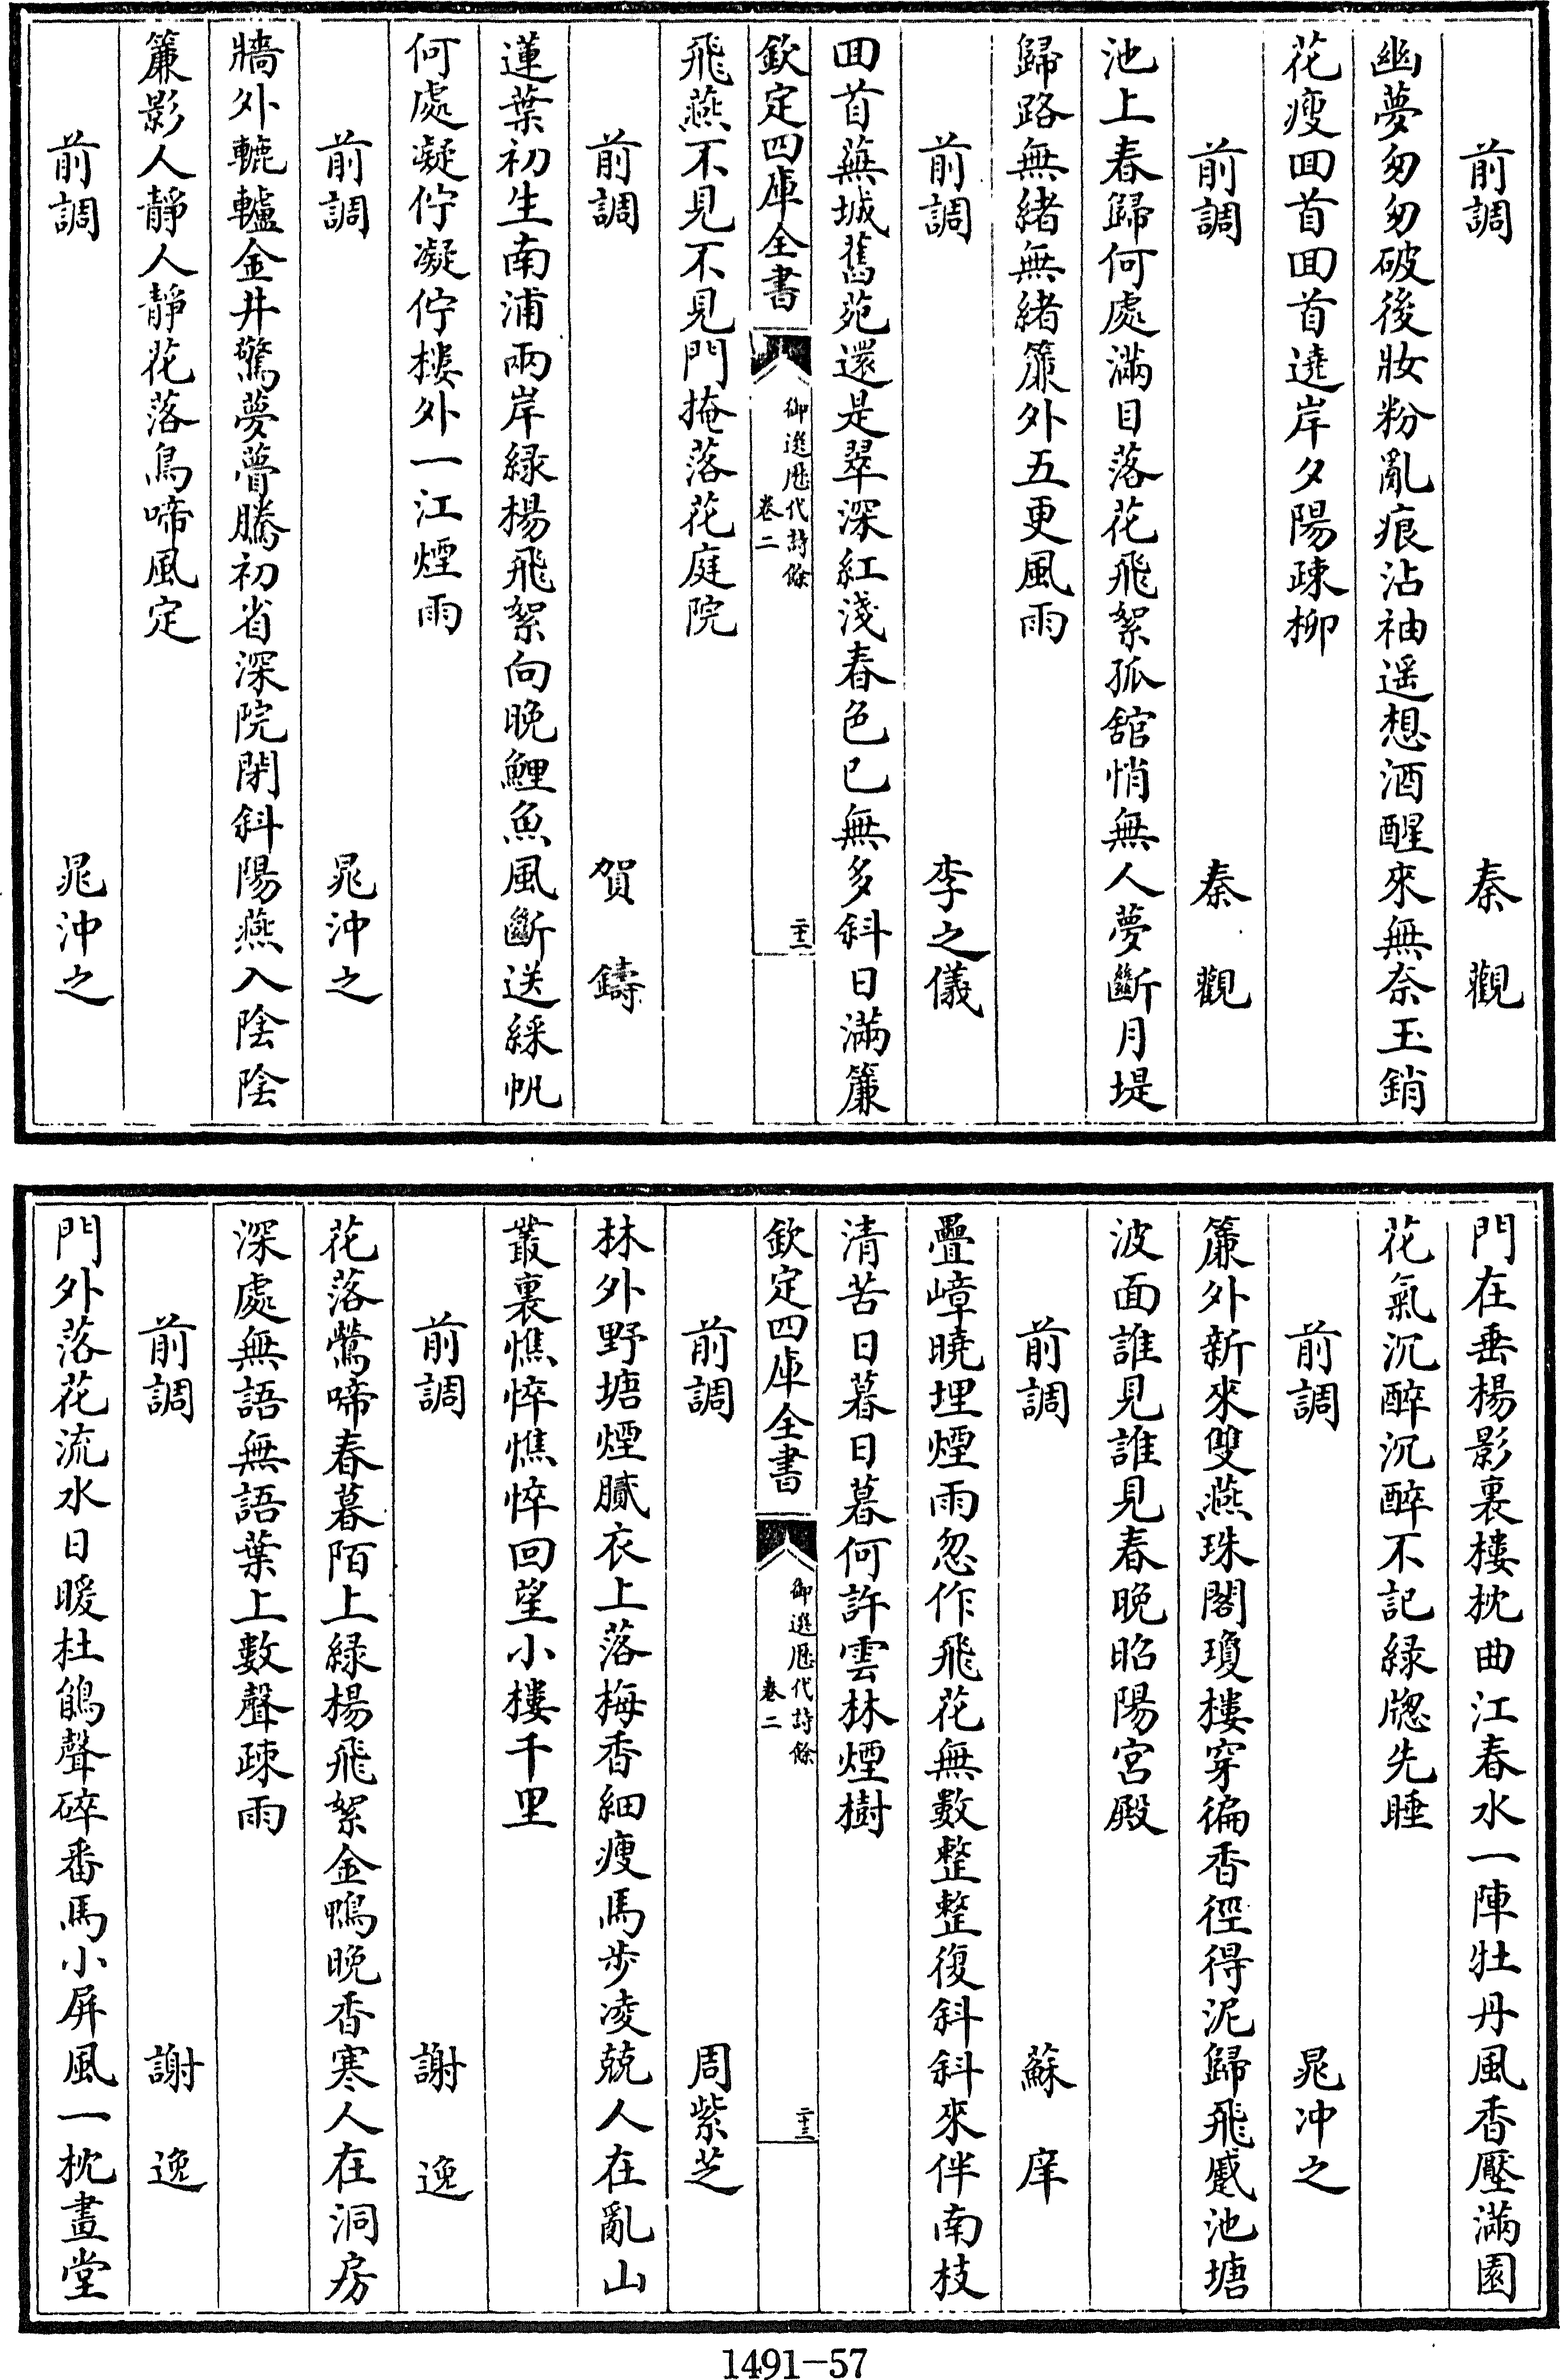 前調　秦觀
幽夢匆匆破後妝粉亂痕沾袖遥想酒醒來無奈玉銷
花瘦囬首囬首遶岸夕陽疎柳
前調　秦觀
池上春歸何處滿目落花飛絮孤舘悄無人夢斷月堤
歸路無緒無緒簾外五更風雨
前調　李之儀
囬首蕪城舊苑還是翠深紅淺春色已無多斜日滿簾
欽定四庫全書　御選歷代詩餘　卷二　二十二
飛燕不見不見門掩落花庭院
前調　賀鑄
蓮葉初生南浦兩岸緑楊飛絮向晚鯉魚風斷送綵帆
何處凝佇凝佇樓外一江煙雨
前調　晁沖之
牆外轆轤金井驚夢瞢騰初省深院閉斜陽燕入陰陰
簾影人靜人靜花落鳥啼風定
前調　晁沖之
門在垂楊影裏樓枕曲江春水一陣牡丹風香壓滿園
花氣沉醉沉醉不記緑牕先睡
前調　晁冲之
簾外新來雙燕珠閣瓊樓穿徧香徑得泥歸飛蹙池塘
波面誰見誰見春晚昭陽宮殿
前調　蘇庠
疊嶂曉埋煙雨忽作飛花無數整整復斜斜來伴南枝
清苦日暮日暮何許雲林煙樹
欽定四庫全書　御選歷代詩餘　卷二　二十三
前調　周紫芝
林外野塘煙膩衣上落梅香細瘦馬步凌兢人在亂山
叢裏憔悴憔悴回望小樓千里
前調　謝逸
花落鶯啼春暮陌上緑楊飛絮金鴨晚香寒人在洞房
深處無語無語葉上數聲疎雨
前調　謝逸
門外落花流水日暖杜鵑聲碎番馬小屏風一枕畫堂
1491-57